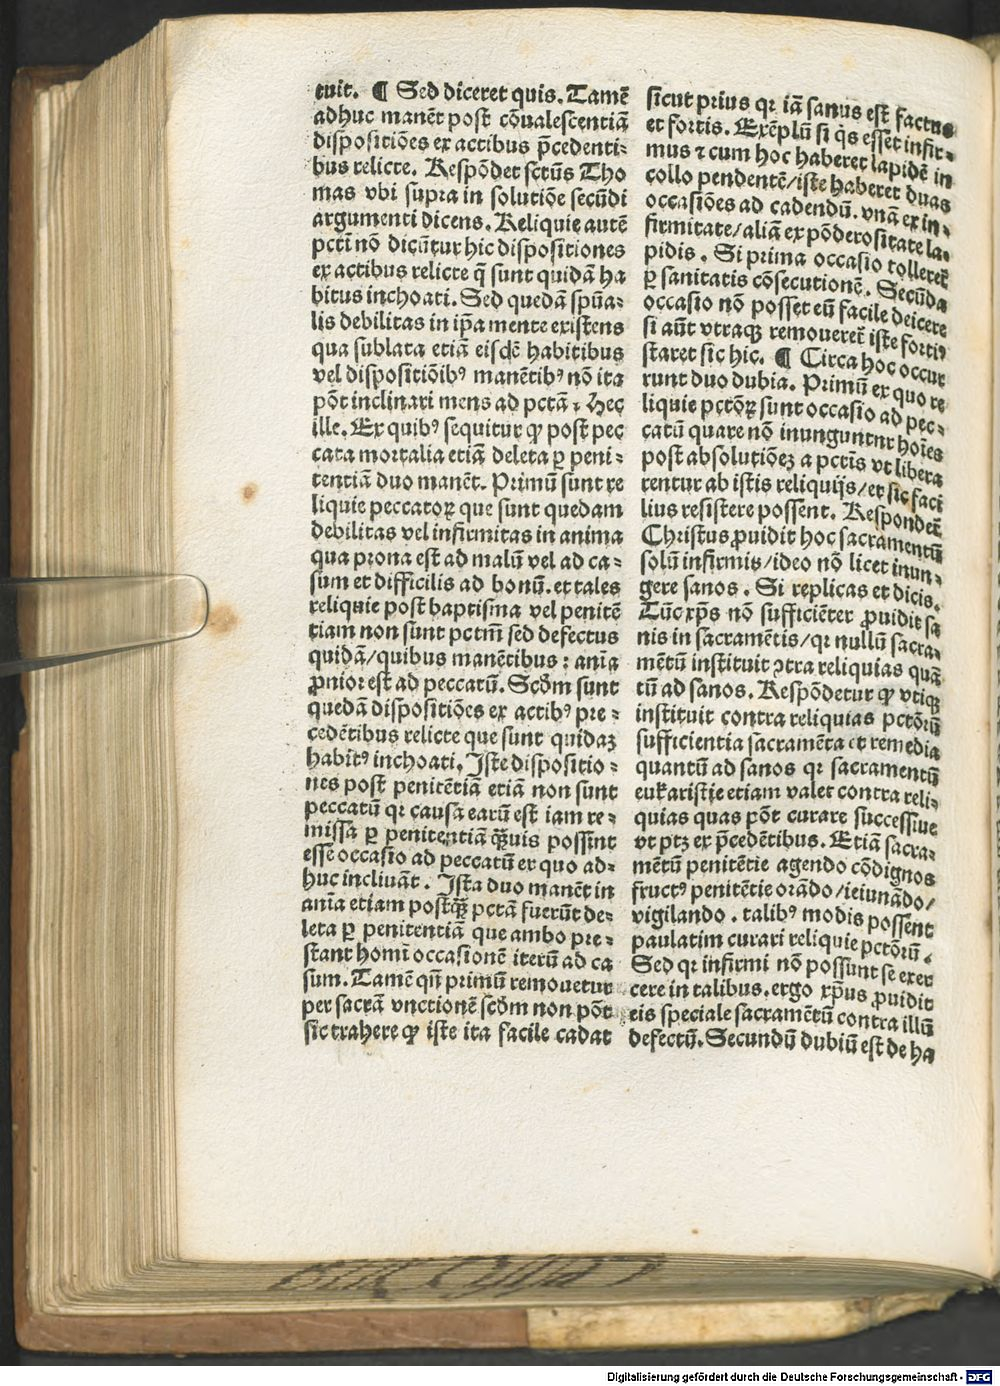 tuit. ¶ Sed diceret quis. Tamē
adhuc manēt post cōualescentiā
dispositiōes ex actibus p̄cedenti⸗
bus relicte. Respōdet sctūs Tho
mas vbi supra in solutiōe secūdi
argumenti dicens. Reliquie autē
pctī nō dicūtur hic dispositiones
ex actibus relicte q̄ sunt quidā ha
bitus inchoati. Sed quedā spūa⸗
lis debilitas in ip̄a mente existens
qua sublata etiā eisdē habitibus
vel dispositiōibꝰ manētibꝰ nō ita
pōt inclinari mens ad pctā. Hec
ille. Ex quibꝰ sequitur ꝙ post pec
cata mortalia etiā deleta ꝑ peni⸗
tentiā duo manēt. Primū sunt re
liquie peccatoꝝ que sunt quedam
debilitas vel infirmitas in anima
qua prona est ad malū vel ad ca⸗
sum et difficilis ad bonū. et tales
reliquie post baptisma vel penitē
tiam non sunt pctm̄ sed defectus
quidā/quibus manētibus: anīa
ꝓnior est ad peccatū. Scd̄m sunt
quedā dispositiōes ex actibꝰ pre⸗
cedētibus relicte que sunt quidaꝫ
habitꝰ inchoati. Iste dispositio⸗
nes post penitētiā etiā non sunt
peccatū qꝛ causa earū est iam re⸗
missa ꝑ penitentiā qꝫuis possint
esse occasio ad peccatū ex quo ad⸗
huc inclināt. Ista duo manēt in
anīa etiam postqꝫ pctā fuerūt de⸗
leta ꝑ penitentiā que ambo pre⸗
stant homī occasionē iterū ad ca
sum. Tamē qn̄ primū remouetur
per sacrā vnctionē scd̄m non pōt
sic trahere ꝙ iste ita facile cadat
sicut prius qꝛ iā sanus est factus
et fortis. Exēplū si q̇s esset infir⸗
mus ⁊ cum hoc haberet lapidē in
collo pendentē/iste haberet duas
occasiōes ad cadendū. vnā ex in⸗
firmitate/aliā ex pōderositate la⸗
pidis. Si prima occasio tolleret̄
ꝑ sanitatis cōsecutionē. Secūda
occasio nō posset eū facile deicere
si aūt vtraqꝫ remoueret̄ iste fortiꝰ
staret sic hic. ¶ Circa hoc occur
runt duo dubia. Primū ex quo re
liquie pctōꝝ sunt occasio ad pec⸗
catū quare nō inunguntur hoīes
post absolutiōeꝫ a pctīs vt libera
rentur ab istis reliquijs/et sic faci
lius resistere possent. Respondet̄
Christus ꝓuidit hoc sacramentū
solū infirmis/ideo nō licet inun⸗
gere sanos. Si replicas et dicis.
Tūc xp̄s nō sufficiēter ꝓuidit sa
nis in sacramētis/qꝛ nullū sacra⸗
mētū instituit ↄtra reliquias quā
tū ad sanos. Respōdetur ꝙ vtiqꝫ
instituit contra reliquias pctōrū
sufficientia sacramēta et remedia
quantū ad sanos qꝛ sacramentū
eukaristie etiam valet contra reli⸗
quias quas pōt curare successiue
vt ptꝫ ex p̄cedētibus. Etiā sacra⸗
mētū penitētie agendo cōdignos
fructꝰ penitētie orādo/ieiunādo/
vigilando. talibꝰ modis possent
paulatim curari reliquie pctōrū.
Sed qꝛ infirmi nō possunt se exer
cere in talibus. ergo xp̄us ꝓuidit
eis speciale sacramētū contra illū
defectū. Secundū dubiū est de ha
Digitalisierung gefördert durch die Deutsche Forschungsgemeinschaft - DFG